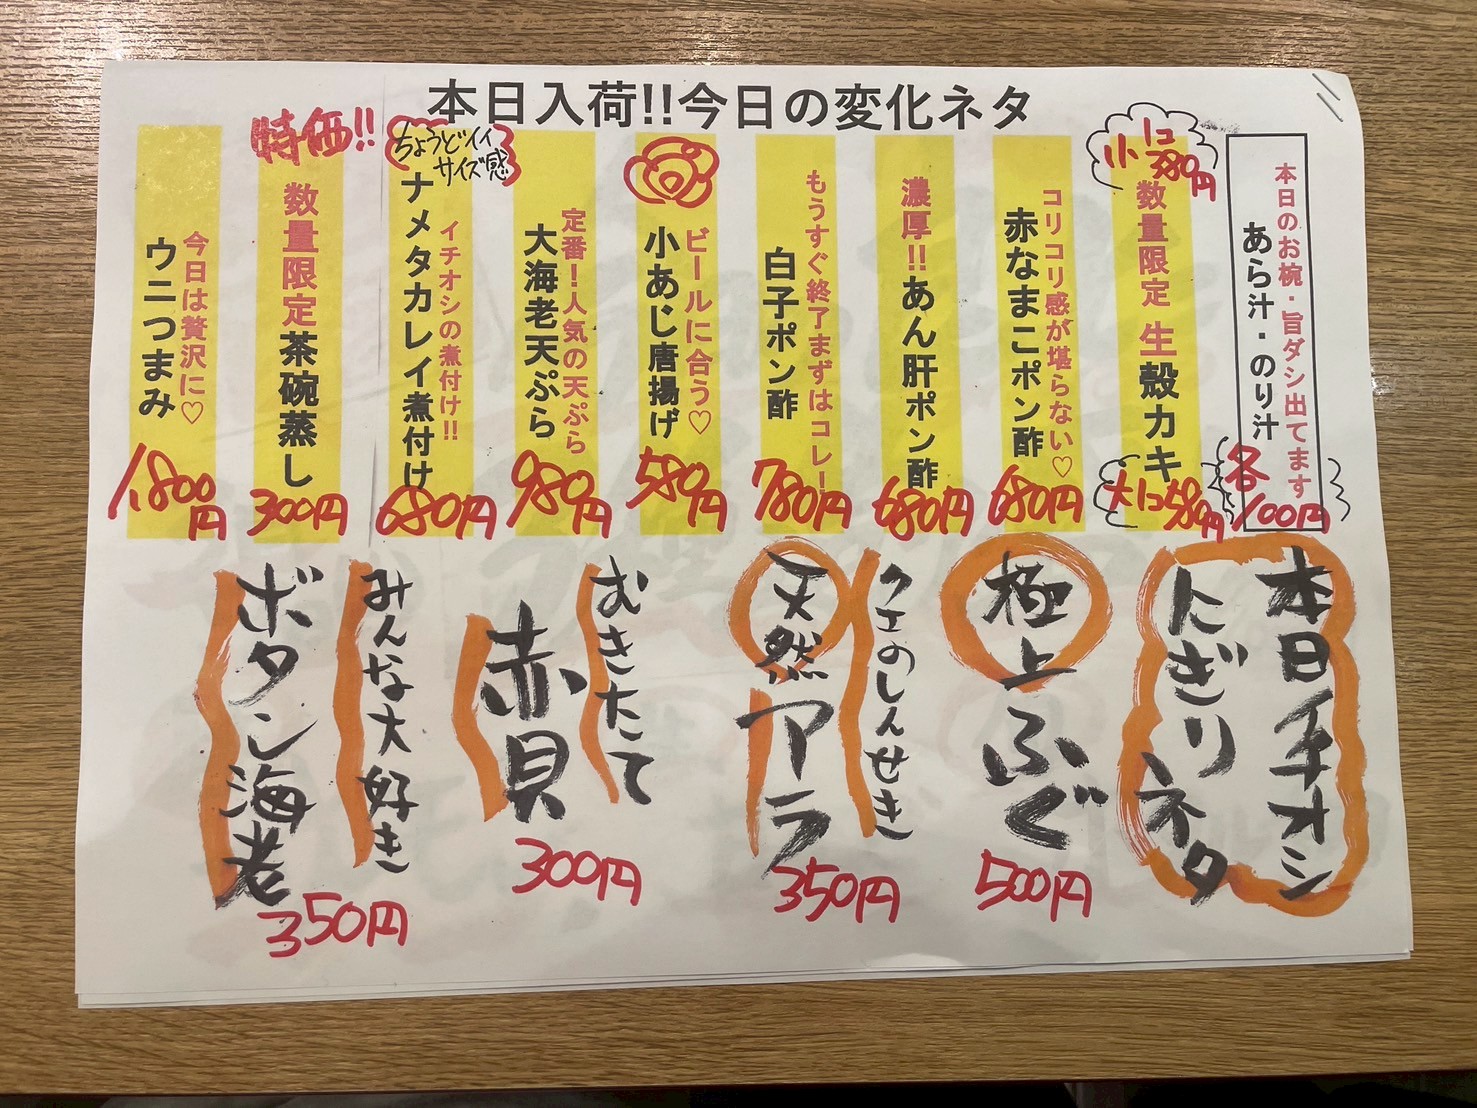 本日入荷!!今日の変化ネタ
本日のお椀・旨ダシ出てます
あら汁・のり汁
各
100円
小1コ
数量限定 生 殻カキ
大1コ580円
コリコリ感が堪らない♡
赤なまこポン酢
680円
濃厚!!あん肝ポン酢
680円
もうすぐ終了まずはコレ!
白子ポン酢
780円
ビールに合う♡
小あじ唐揚げ
580円
定番!人気の天ぷら
大海老天ぷら
980円
ちょうどイイ
サイズ感
イチオシの煮付け!!
ナメタカレイ煮付け
680円
特価!!
数量限定茶碗蒸し
300円
今日は贅沢に♡
ウニつまみ
1,800円
本日イチオシ
にぎりネタ
極上ふぐ
500円
クエのしんせき
天然アラ
350円
むきたて
赤貝
300円
みんな大好き
ボタン海老
350円